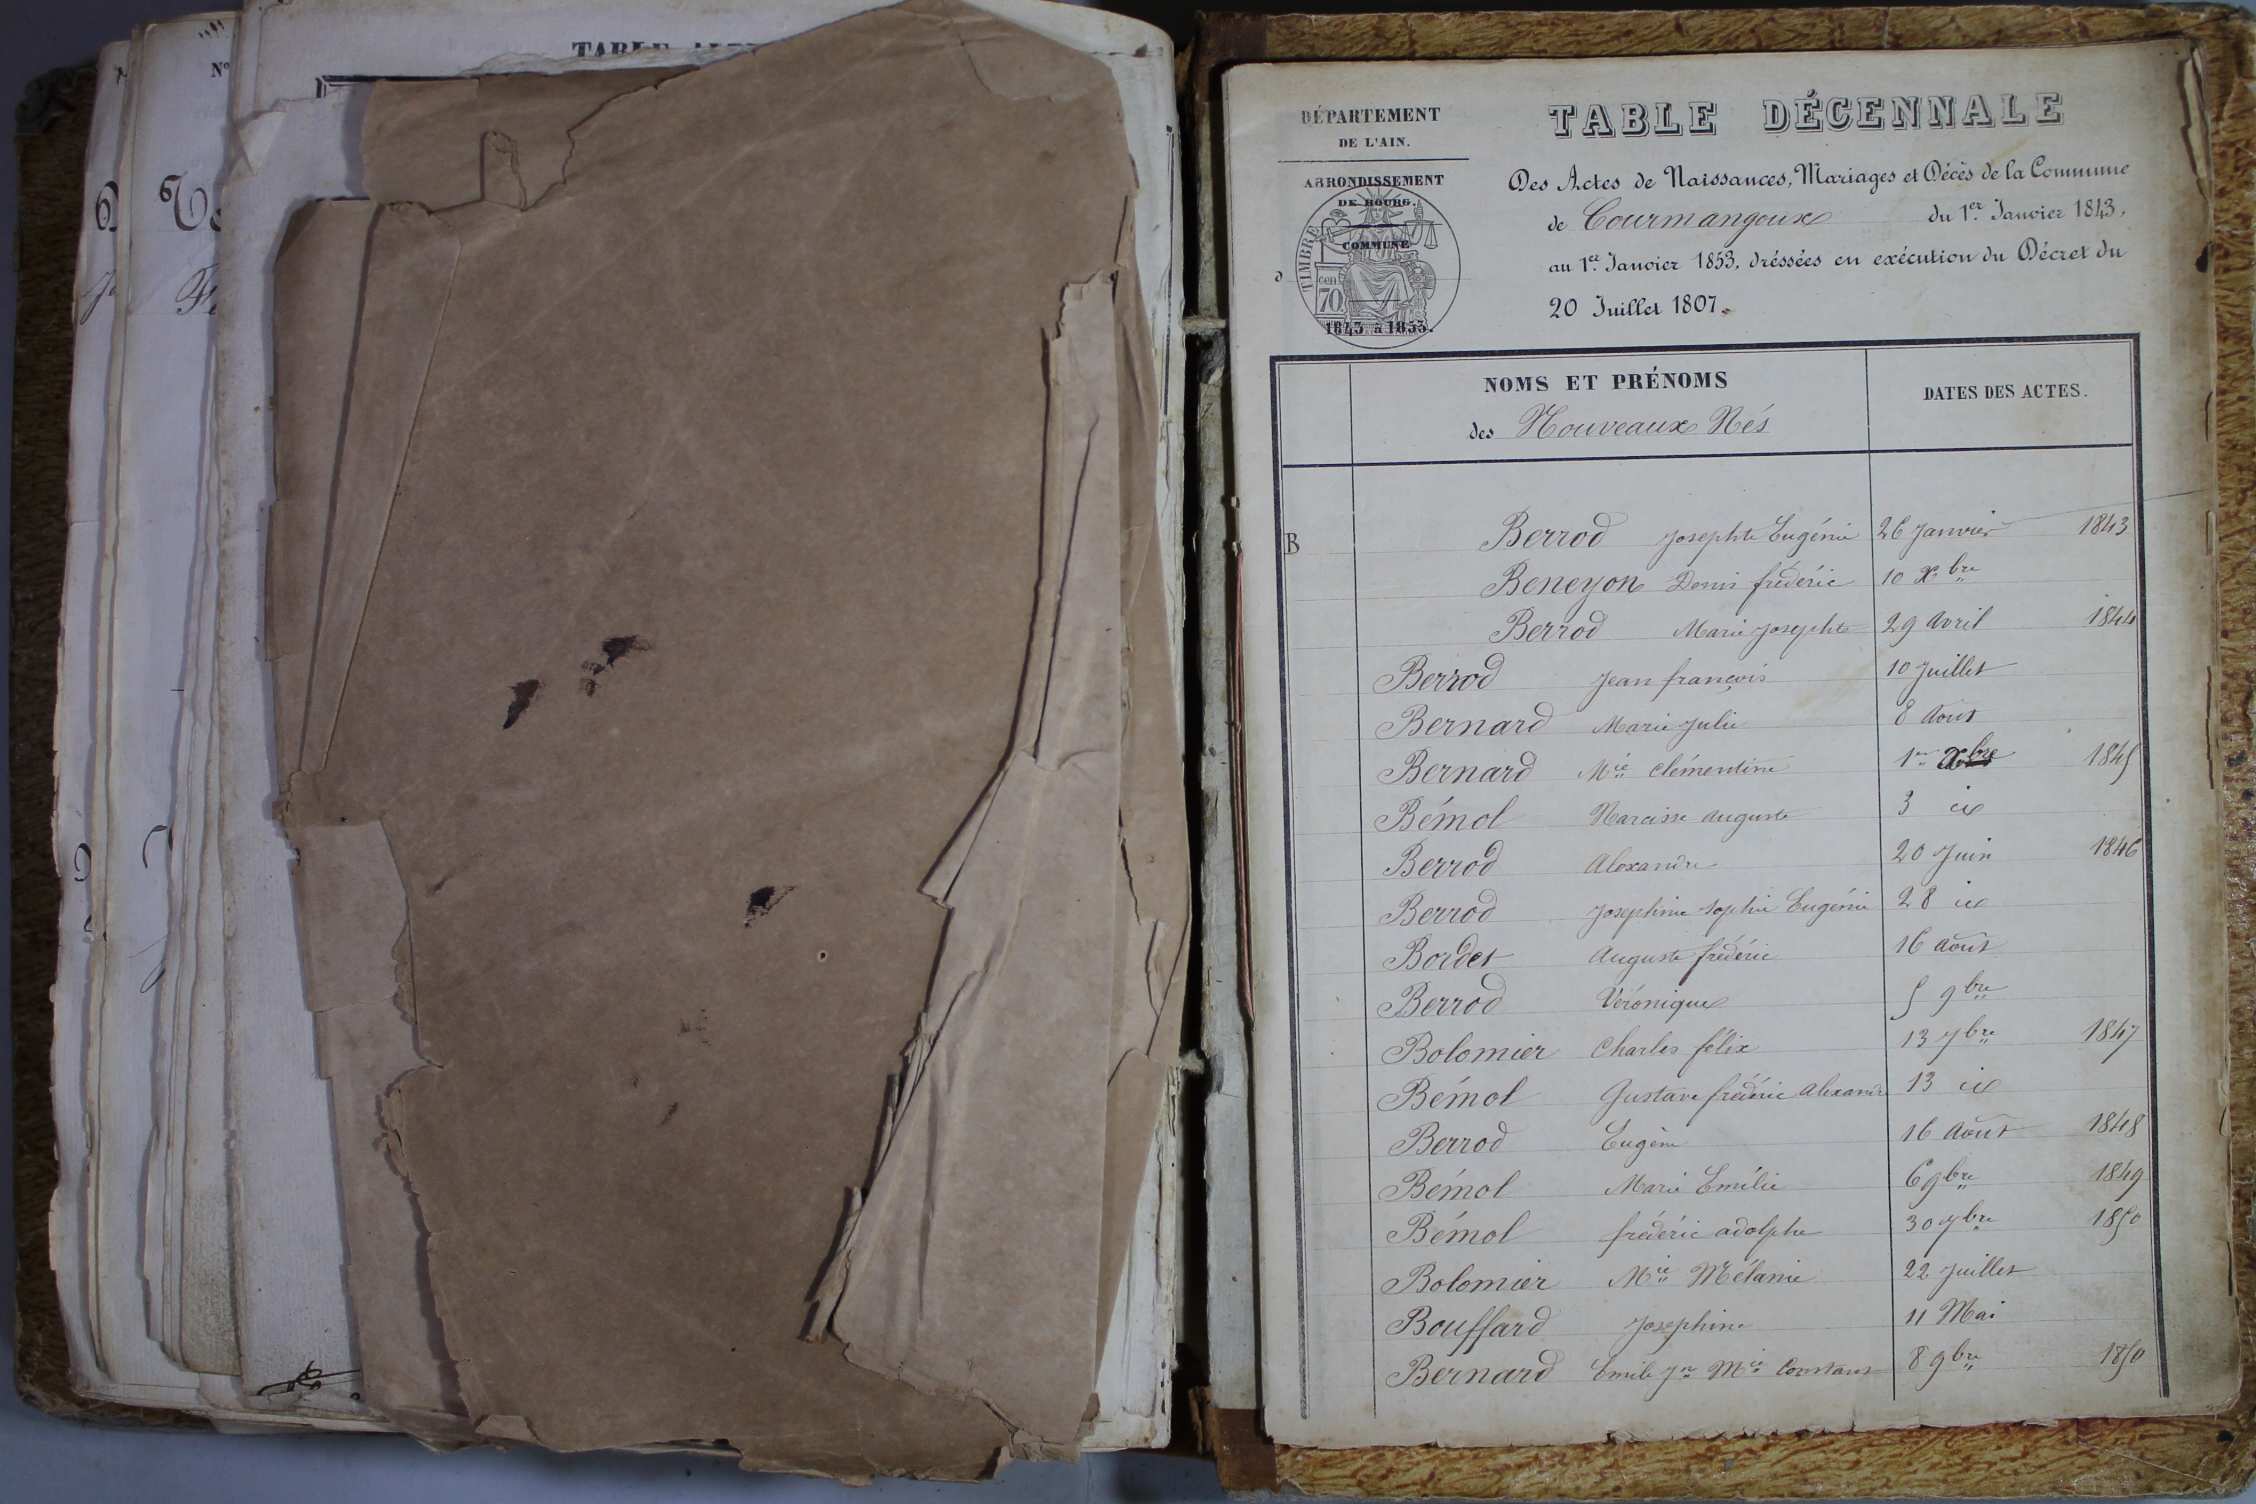 TABLE
N°
DÉPARTEMENT
DE L'AIN.
ARRONDISSEMENT
DE BOURG.
COMMUNE
TIMBRE
cen
70.
1843 à 1853.
TABLE DÉCENNALE
Des Actes de Naissances, Mariages et Décès de la Commune
de Courmangoux du 1er. Janvier 1843,
au 1er. Janvier 1853, dréssées en exécution du Décret du
20 Juillet 1807.
NOMS ET PRÉNOMS DATES DES ACTES.
des Nouveaux Nés
B Berrod Josephte Eugénie 26 Janvier 1843
Beneyon Denis frédéric 10 Xbre
Berrod Marie Josephte 29 avril 1844
Berrod Jean françois 10 Juillet
Bernard Marie Julie 8 Aout
Bernard Mie clémentine 1er Xbre 1845
Bémol Narcisse auguste 3 id
Berrod Alexandre 20 Juin 1846
Berrod Josephine Sophie Eugénie 28 id
Bordet Auguste frédéric 16 août
Berrod Véronique 5 9bre
Bolomier Charles félix 13 7bre 1847
Bémol Gustave frédéric alexandre 13 id
Berrod Eugène 16 Août 1848
Bémol Marie Emélie 6 9bre 1849
Bémol frédéric adolphe 30 7bre 1850
Bolomier Mie Mélanie 22 Juillet
Bouffard Josephine 11 Mai
Bernard Emile Jn Mie Constant 8 9bre 1850